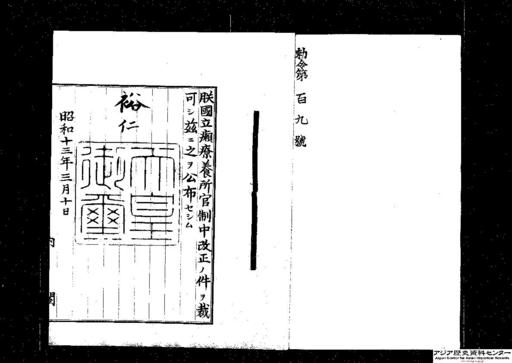 勅令第百九號
朕國立癩療養所官制中改正ノ件ヲ裁
可シ茲ニ之ヲ公布セシム
裕仁
天皇御璽
昭和十三年三月十日
内閣
アジア歴史資料センター
Japan Center for Asian Historical Records